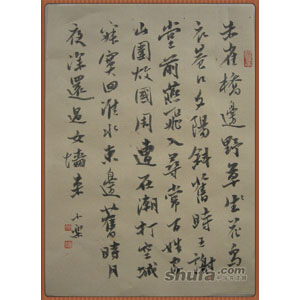 朱雀橋邊野草花烏
衣巷口夕陽斜舊時王謝
堂前燕飛入尋常百姓家
山圍故國周遭在潮打空城
寂寞回淮水東邊舊時月
夜深還過女墻來
shufa.com